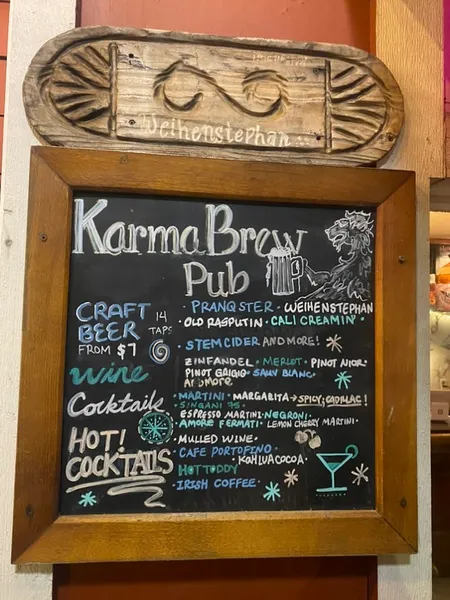 Weihenstephan
Karma Brew
Pub
CRAFT
BEER
FROM $7
14
TAPS
· PRANQSTER · WEIHENSTEPHAN
· OLD RASPUTIN · CALI CREAMIN'
· STEM CIDER AND MORE!
Wine
ZINFANDEL · MERLOT · PINOT NOIR
PINOT GRIGIO · SAUV BLANC
AND MORE
Cocktails
· MARTINI · MARGARITA → SPICY, CADILLAC!
· SINGANI 75 ·
ESPRESSO MARTINI · NEGRONI ·
AMORE FERMATI · LEMON CHERRY MARTINI ·
HOT!
COCKTAILS
· MULLED WINE ·
CAFE PORTOFINO ·
· KAHLUA COCOA ·
HOT TODDY
· IRISH COFFEE ·